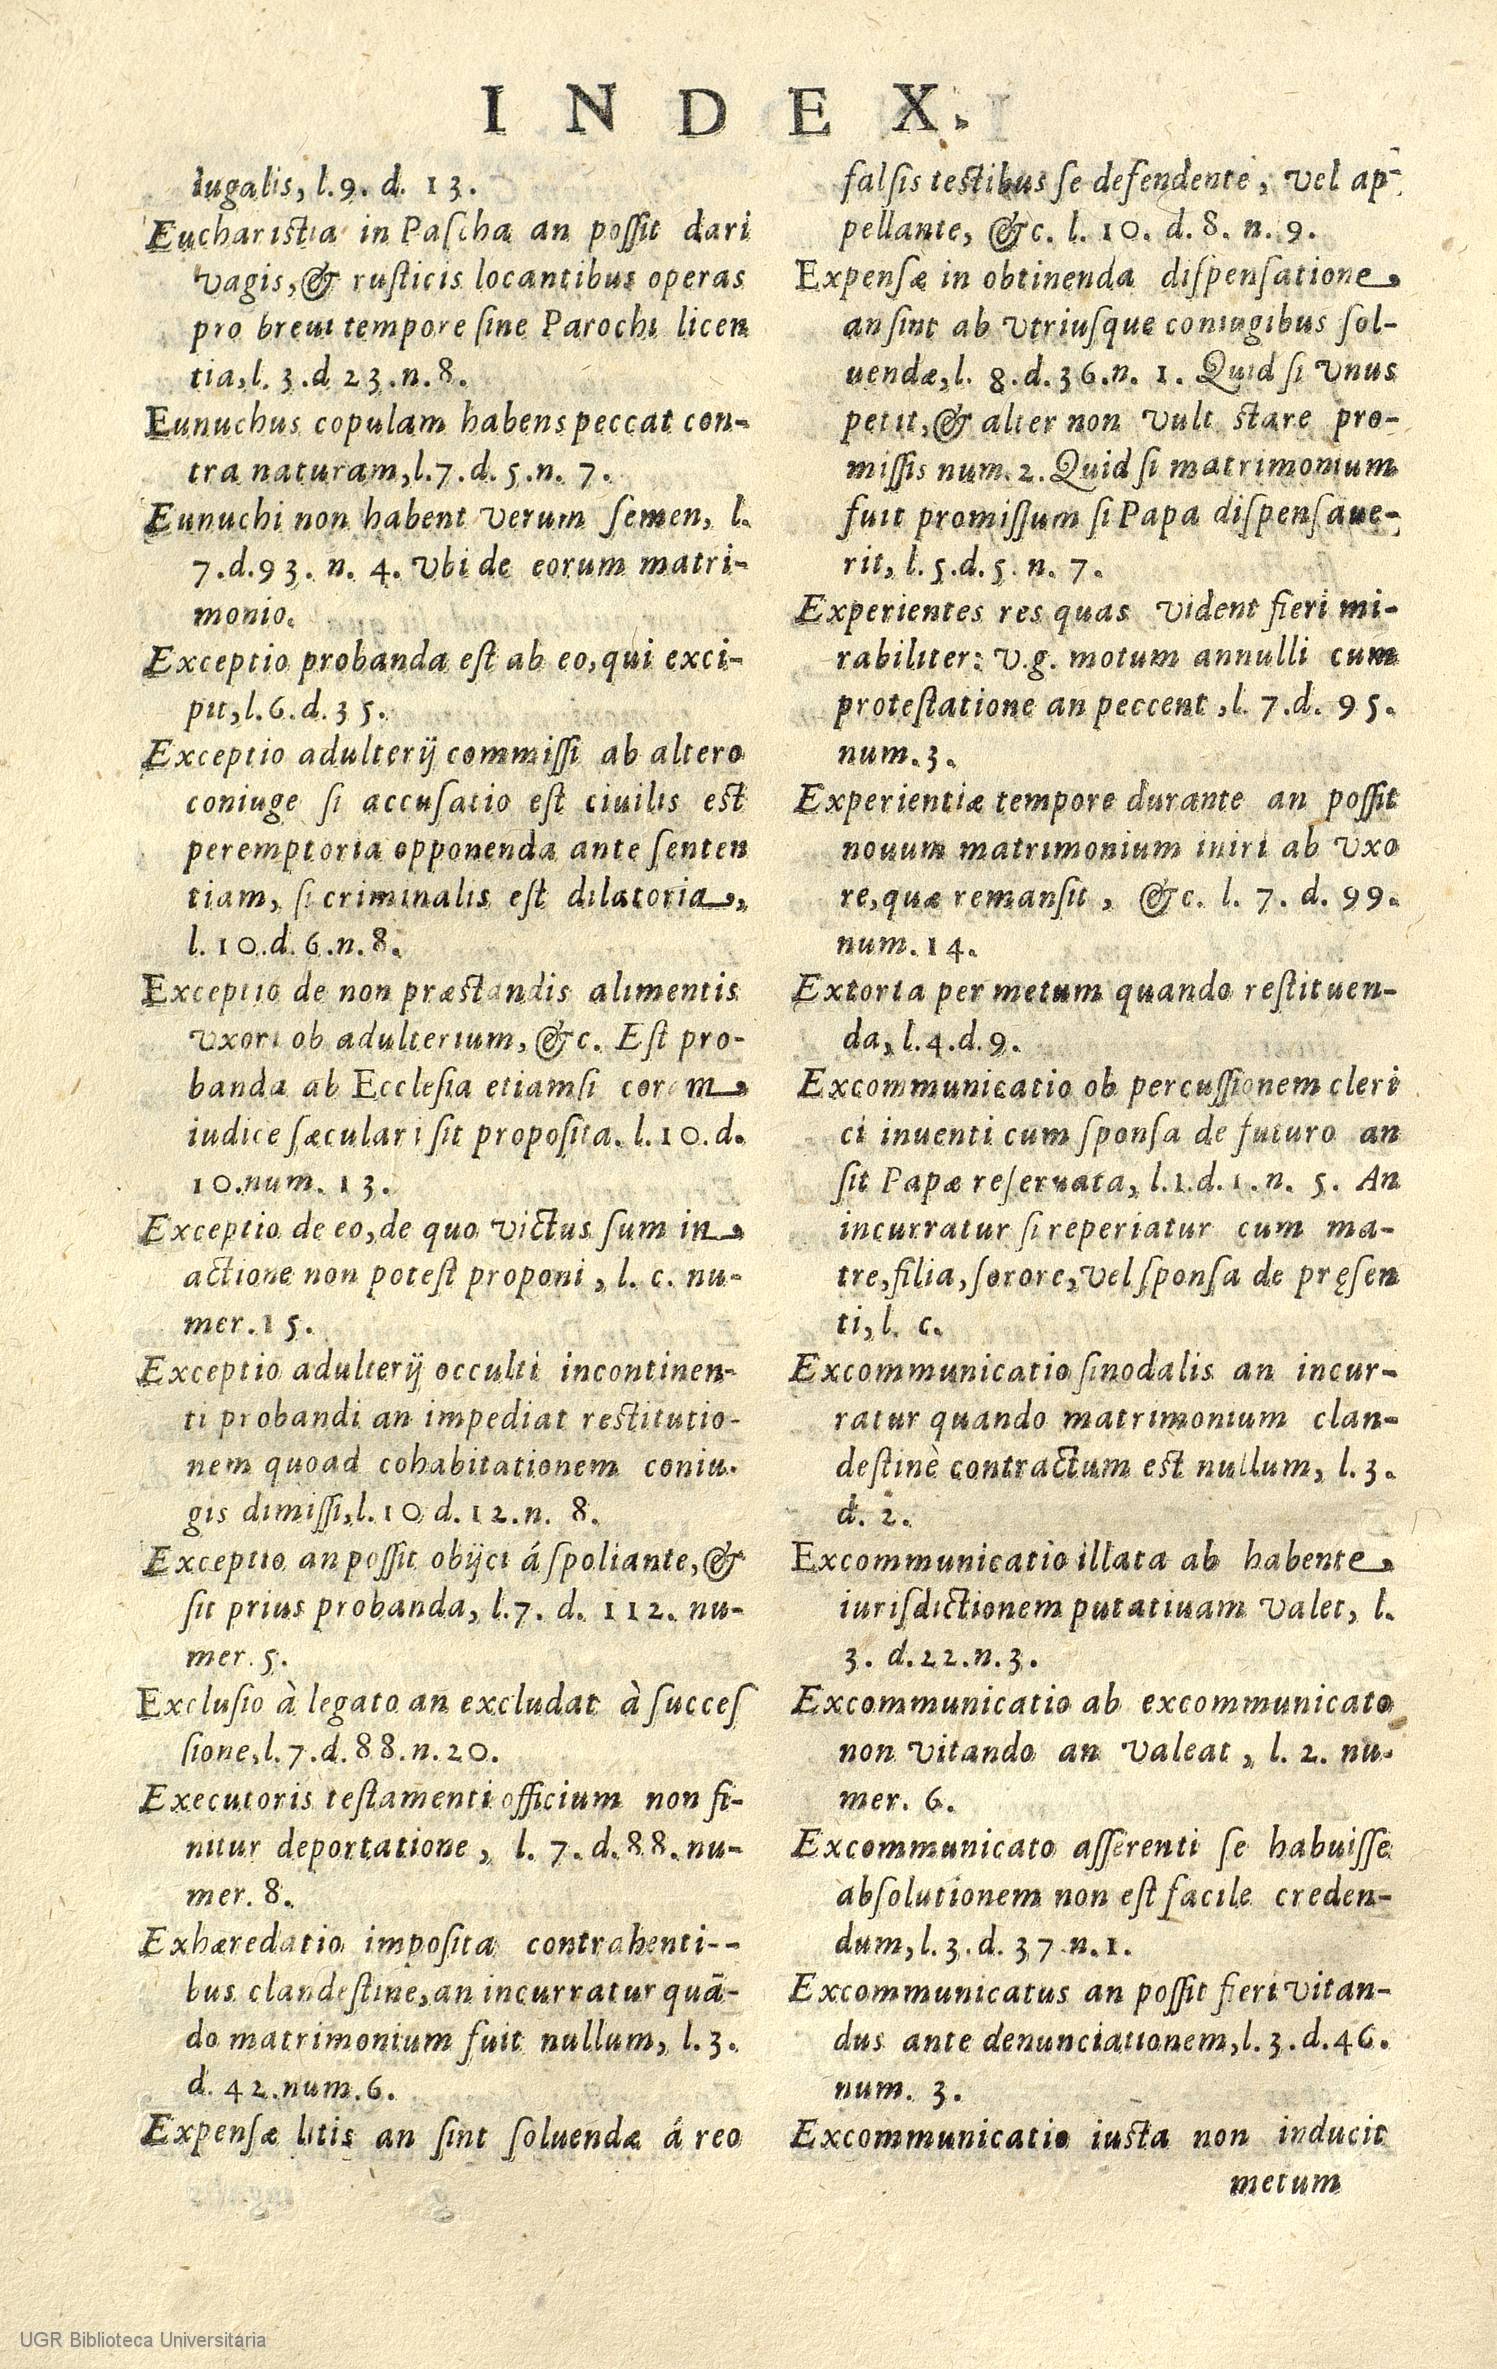 INDEX.
iugalis, l.9. d. 13.
Eucharistia in Pascha an possit dari
vagis, & rusticis locantibus operas
pro breui tempore sine Parochi licen
tia, l. 3.d 23.n.8.
Eunuchus copulam habens peccat con-
tra naturam, l.7.d.5.n. 7.
Eunuchi non habent verum semen, l.
7.d.93. n. 4. vbi de eorum matri-
monio.
Exceptio probanda est ab eo, qui exci-
pit, l.6.d.35.
Exceptio adulterij commissi ab altero
coniuge si accusatio est ciuilis est
peremptoria opponenda ante senten
tiam, si criminalis est dilatoria,
l. 10.d.6.n.8.
Exceptio de non præstandis alimentis
vxori ob adulterium, &c. Est pro-
banda ab Ecclesia etiamsi coram
iudice sæculari sit proposita. l.10.d.
10.num. 13.
Exceptio de eo, de quo victus sum in
actione non potest proponi, l. c. nu-
mer.15.
Exceptio adulterij occulti incontinen-
ti probandi an impediat restitutio-
nem quoad cohabitationem coniu-
gis dimissi, l.10 d.12.n. 8.
Exceptio an possit obijci á spoliante, &
sit prius probanda, l.7. d. 112. nu-
mer. 5.
Exclusio à legato an excludat à succes
sione, l.7.d.88.n.20.
Executoris testamenti officium non fi-
nitur deportatione, l. 7.d.88.nu-
mer. 8.
Exhæredatio imposita contrahenti--
bus clandestine, an incurratur quã-
do matrimonium fuit nullum, l.3.
d. 42.num.6.
Expensæ litis an sint soluendæ á reo
falsis testibus se defendente, vel ap-
pellante, &c. l. 10. d.8. n. 9.
Expensæ in obtinenda dispensatione
an sint ab vtriusque coniugibus sol-
uendæ, l. 8.d.36.n. 1. Quid si vnus
petit, & alter non vult stare pro-
missis num.2. Quid si matrimonium
fuit promissum si Papa dispensaue-
rit, l.5.d.5. n. 7.
Experientes res quas vident fieri mi-
rabiliter: v.g. motum annulli cum
protestatione an peccent, l. 7.d. 95.
num.3.
Experientiæ tempore durante an possit
nouum matrimonium iniri ab vxo
re, quæ remansit, &c. l. 7. d. 99.
num.14.
Extorta per metum quando restituen-
da, l.4.d.9.
Excommunicatio ob percussionem cleri
ci inuenti cum sponsa de futuro an
sit Papæ reseruata, l.1.d.1.n. 5. An
incurratur si reperiatur cum ma-
tre, filia, sorore, vel sponsa de pręsen
ti, l. c.
Excommunicatio sinodalis an incur-
ratur quando matrimonium clan-
destinè contractum est nullum, l.3.
d. 2.
Excommunicatio illata ab habente
iurisdictionem putatiuam valet, l.
3. d.22.n.3.
Excommunicatio ab excommunicato
non vitando an valeat, l. 2. nu-
mer. 6.
Excommunicato asserenti se habuisse
absolutionem non est facile creden-
dum, l.3.d. 37.n.1.
Excommunicatus an possit fieri vitan-
dus ante denunciationem, l.3.d.46.
num. 3.
Excommunicatio iusta non inducit
metum
UGR Biblioteca Universitaria